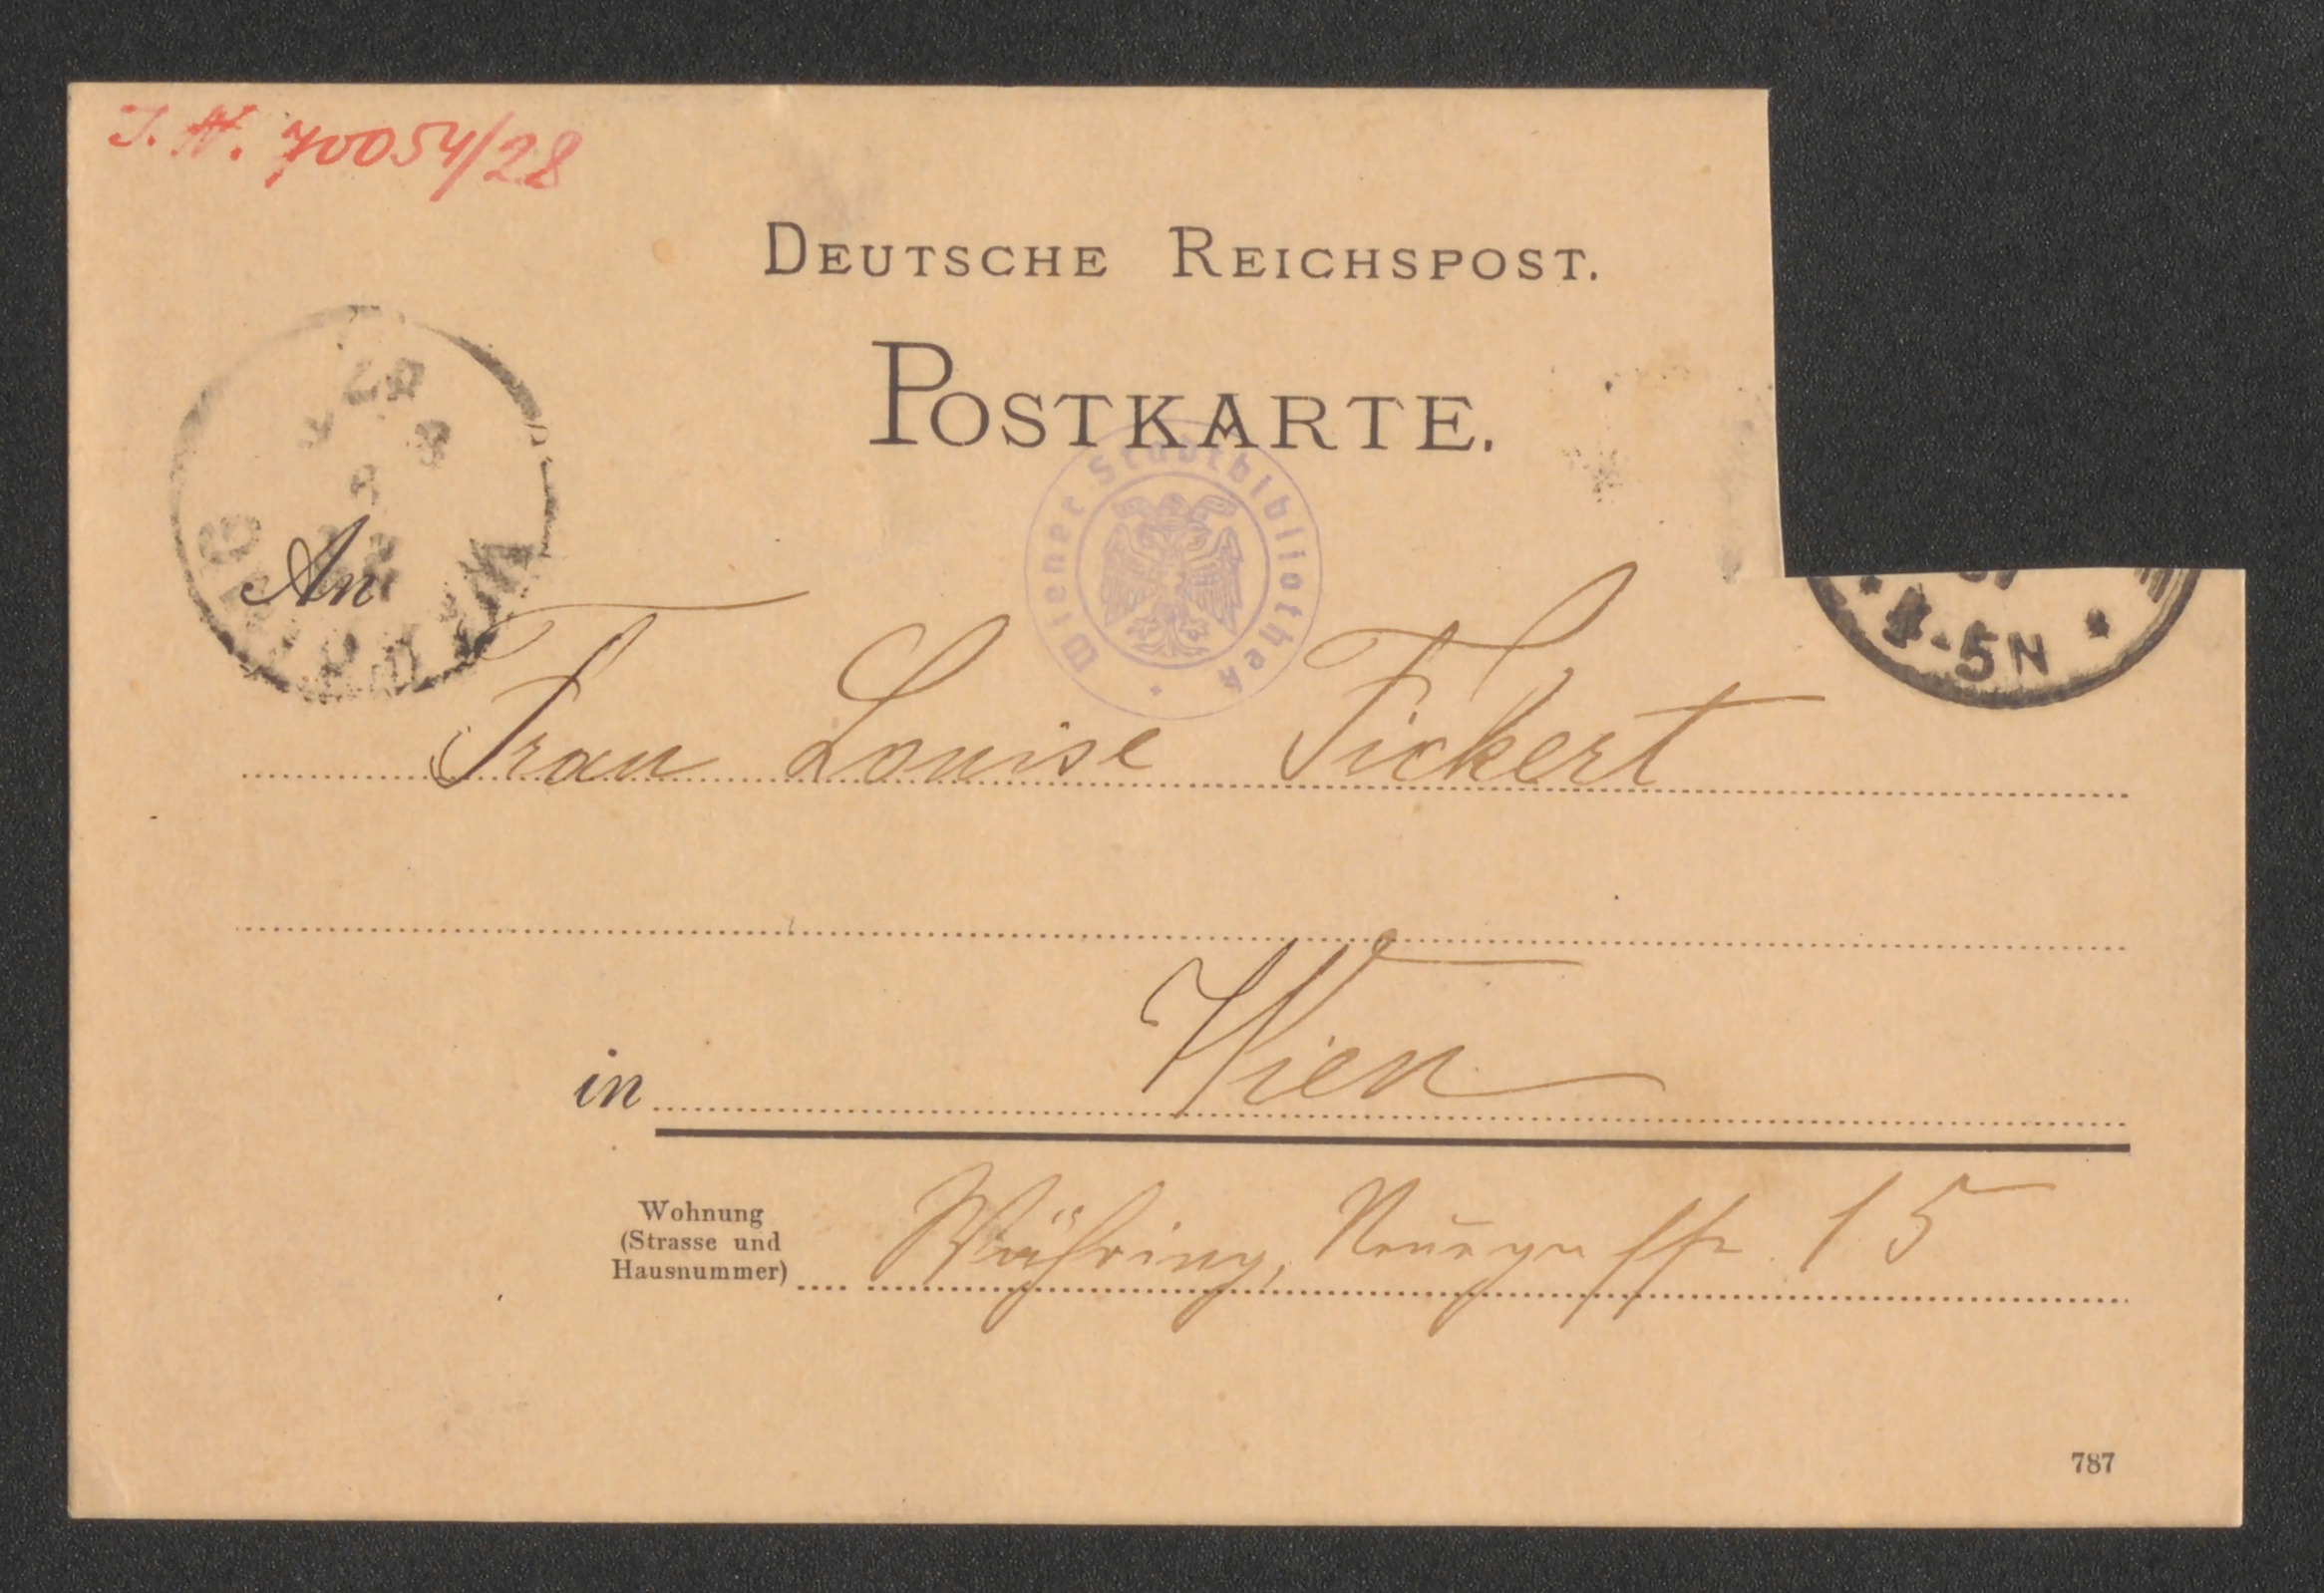 J. N. 70054/28
DEUTSCHE REICHSPOST.
POSTKARTE.
Wiener Stadtbibliothek
An
5N
Frau Louise Fickert
in Wien
Wohnung
(Strasse und
Hausnummer)
Währing, Neuegasse 15
787